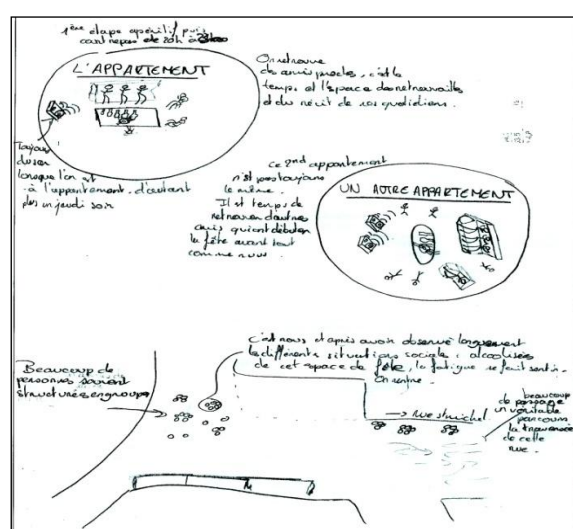 1ère étape apéritif puis
court repas de 20h à
L'APPARTEMENT
On retrouve
des amis proches, c'est le
temps et l'espace des retrouvailles
et du récit de nos quotidiens.
Toujours
du son
lorsque l'on est
à l'appartement, d'autant
plus un jeudi soir
Ce 2nd appartement
n'est pas toujours
le même.
Il est temps de
retrouver d'autres
amis qui ont débuté
la fête avant tout
comme nous.
UN AUTRE APPARTEMENT
C'est nous et après avoir observé longuement
les différentes situations sociales alcoolisées
de cet espace de fête, la fatigue se fait sentir.
On rentre.
Beaucoup de
personnes souvent
structurées en groupe
→ rue st michel
beaucoup
de passage
un véritable
parcours
la traversée
de cette
rue.
M